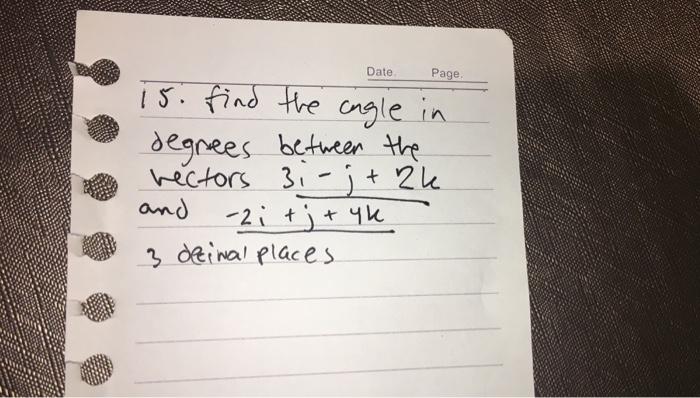 Date. Page.
15. find the angle in
degrees between the
vectors 3i - j + 2k
and -2i + j + 4k
3 decimal places